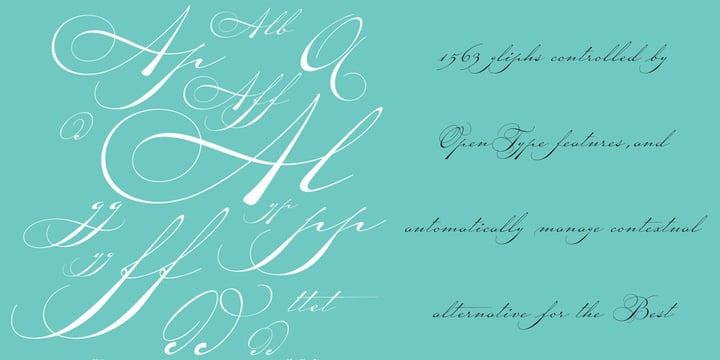 Ap
Alb
A
Aff
Al
gg
yp
pp
yy
ff
ttet
1563 gliphs controlled by
OpenType features, and
automatically manage contextual
alternative for the Best